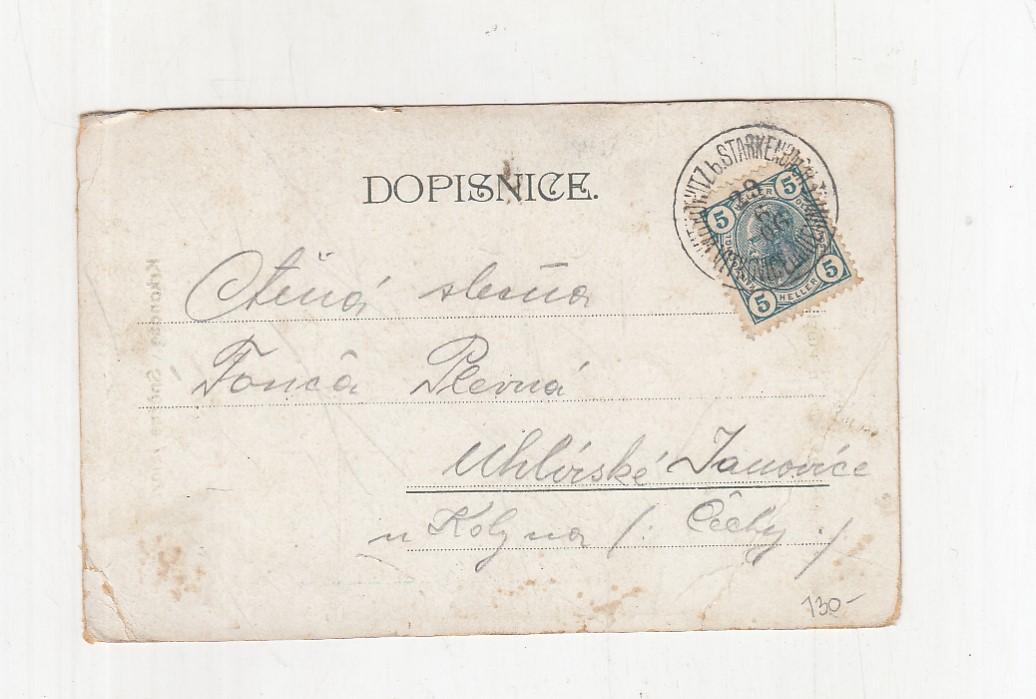 DOPISNICE.
b. STARKENB
5 HELLER 5
5 HELLER 5
Ctěná slečna
Tonča Plevná
Uhlířské Janovice
u Kolyna /: Čechy :/
130-